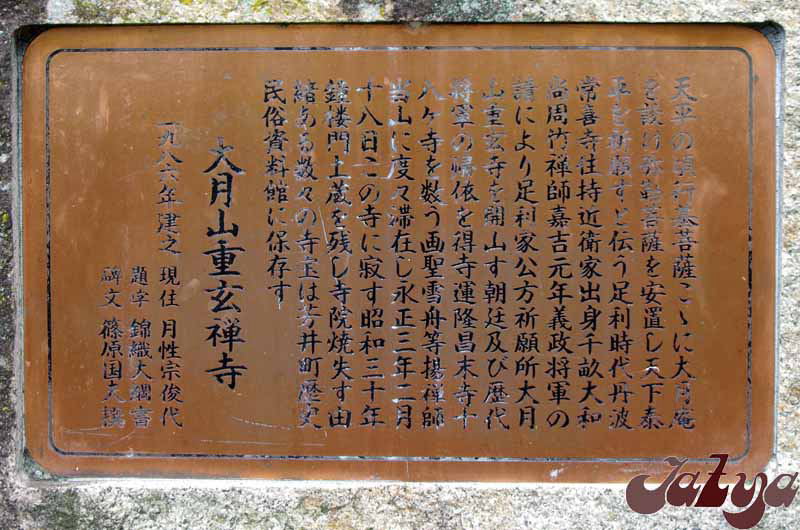 天平の頃行基菩薩こゝに大月庵
を設け弥勒菩薩を安置し天下泰
平を祈願すと伝う足利時代丹波
常喜寺住持近衛家出身千畝大和
尚周竹禅師嘉吉元年義政将軍の
請により足利家公方祈願所大月
山重玄寺を開山す朝廷及び歴代
将軍の帰依を得寺運隆昌末寺十
八ヶ寺を数う画聖雪舟等揚禅師
当山に度々滞在し永正三年二月
十八日この寺に寂す昭和三十年
鐘楼門土蔵を残し寺院焼失す由
緒ある数々の寺宝は芳井町歴史
民俗資料館に保存す
大月山重玄禅寺
一九八六年建之 現住 月性宗俊代
題字 錦織大綱書
碑文 篠原国夫
Jatya